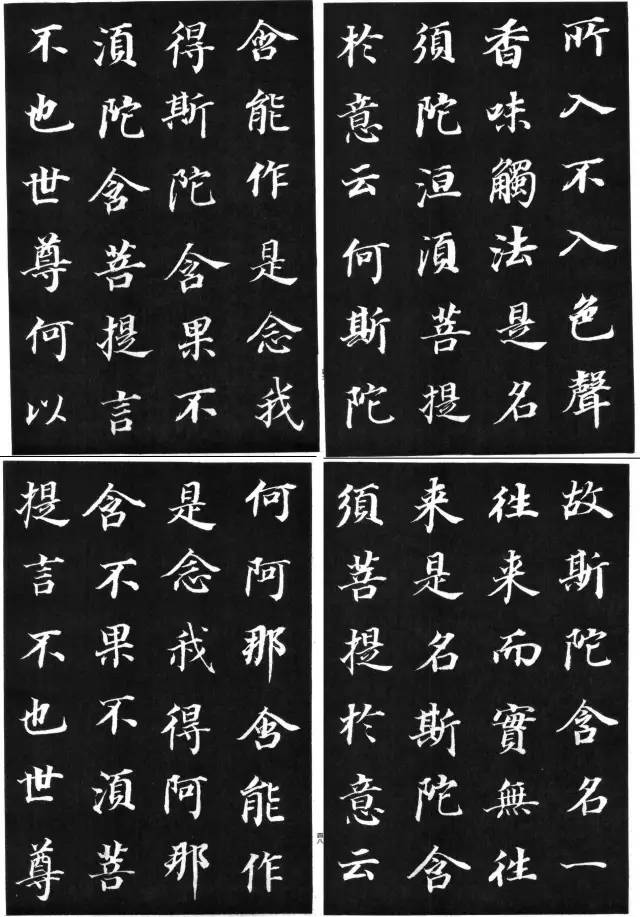 所入不入色聲
香味觸法是名
須陀洹湏菩提
於意云何斯陀
含能作是念我
得斯陀含果不
湏陀含菩提言
不也世尊何以
故斯陀含名一
徃来而實無徃
来是名斯陀含
須菩提於意云
何阿那含能作
是念我得阿那
含不果不湏菩
提言不也世尊
四八